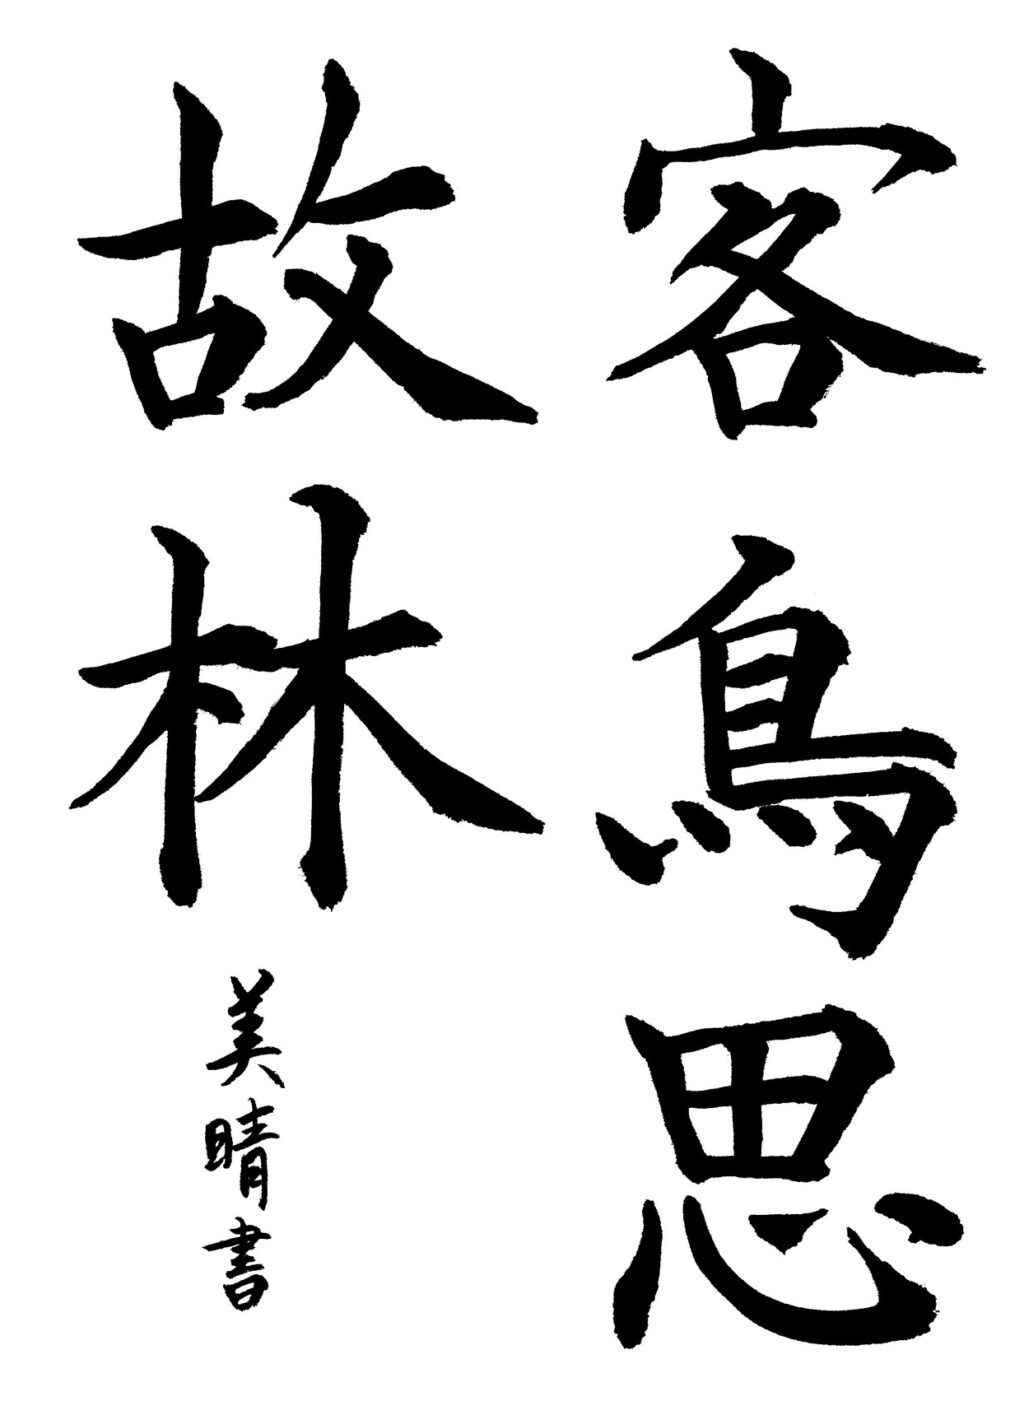 客鳥思
故林
美晴書